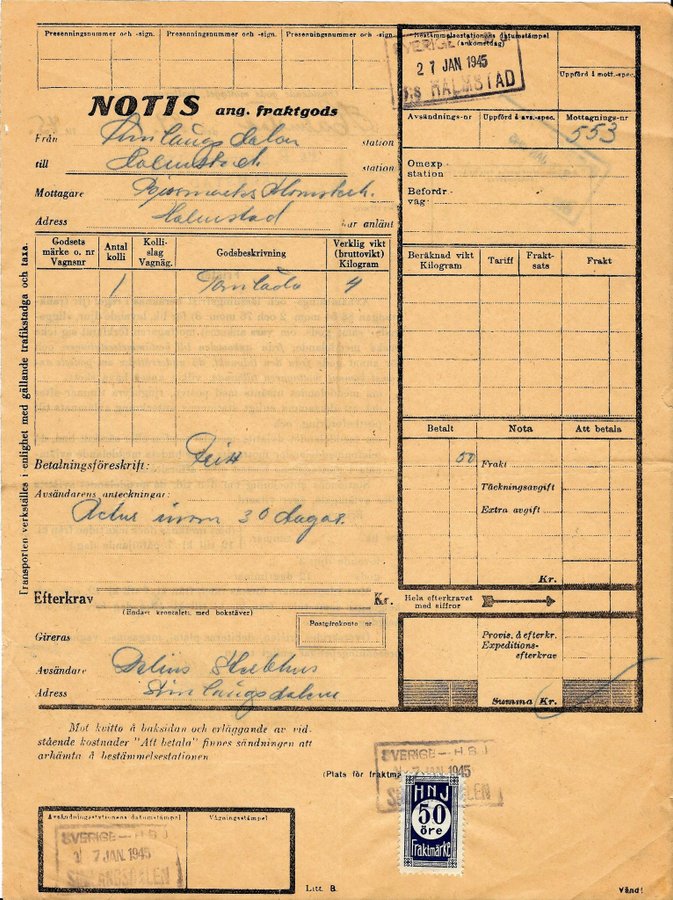 Presenningsnummer och -sign. Presenningsnummer och -sign. Presenningsnummer och -sign.
Bestämmelsestationens datumstämpel
(ankomstdag)
SVERIGE
27 JAN 1945
HALMSTAD
Uppförd å mott.-spec.
NOTIS ang. fraktgods
Avsändnings-nr Uppförd å avs.-spec. Mottagnings-nr
553
Från Simlångsdalen station
till Halmstad station
Omexp.
station
Befordr.-
väg
Mottagare
Adress Halmstad har anlänt
Godsets
märke o. nr
Vagnsnr
Antal
kolli
Kolli-
slag
Vagnäg.
Godsbeskrivning
Verklig vikt
(bruttovikt)
Kilogram
1 Tomlåda 4
Beräknad vikt
Kilogram
Tariff
Frakt-
sats
Frakt
Transporten verkställes i enlighet med gällande trafikstadga och taxa.
Betalt Nota Att betala
50 Frakt
Täckningsavgift
Extra avgift
Kr.
Betalningsföreskrift:
Avsändarens anteckningar:
Retur inom 30 dagar.
Efterkrav Kr.
(Endast kronetalet, med bokstäver)
Hela efterkravet
med siffror
Postgirokonto nr
Gireras
Provis. å efterkr.
Expeditions-
efterkrav
Summa Kr.
Avsändare
Adress Simlångsdalen
Mot kvitto å baksidan och erläggande av vid-
stående kostnader "Att betala" finnes sändningen att
avhämta å bestämmelsestationen
(Plats för
SVERIGE — HBJ
7 JAN 1945
HNJ
50
öre
Fraktmärke
Avsändningsstationens datumstämpel Vägningsstämpel
SVERIGE — HBJ
7 JAN. 1945
SIMLÅNGSDALEN
Litt. B. Vänd!